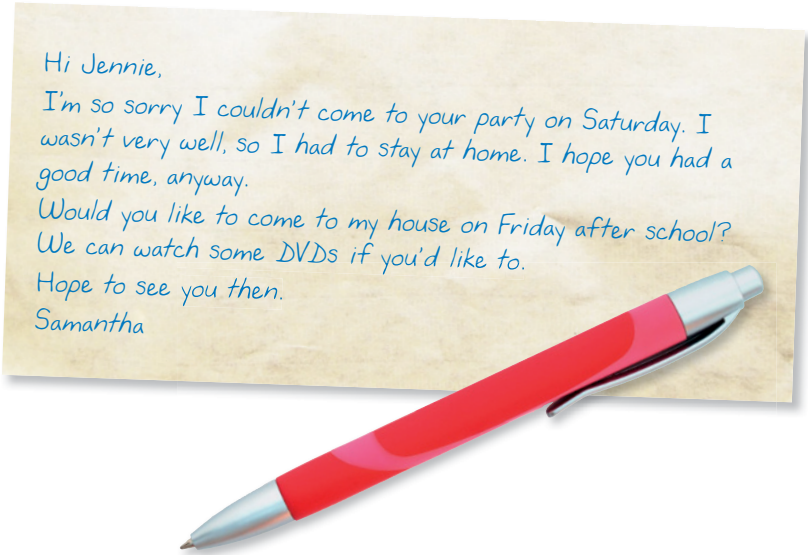 Hi Jennie,
I'm so sorry I couldn't come to your party on Saturday. I
wasn't very well, so I had to stay at home. I hope you had a
good time, anyway.
Would you like to come to my house on Friday after school?
We can watch some DVDs if you'd like to.
Hope to see you then.
Samantha